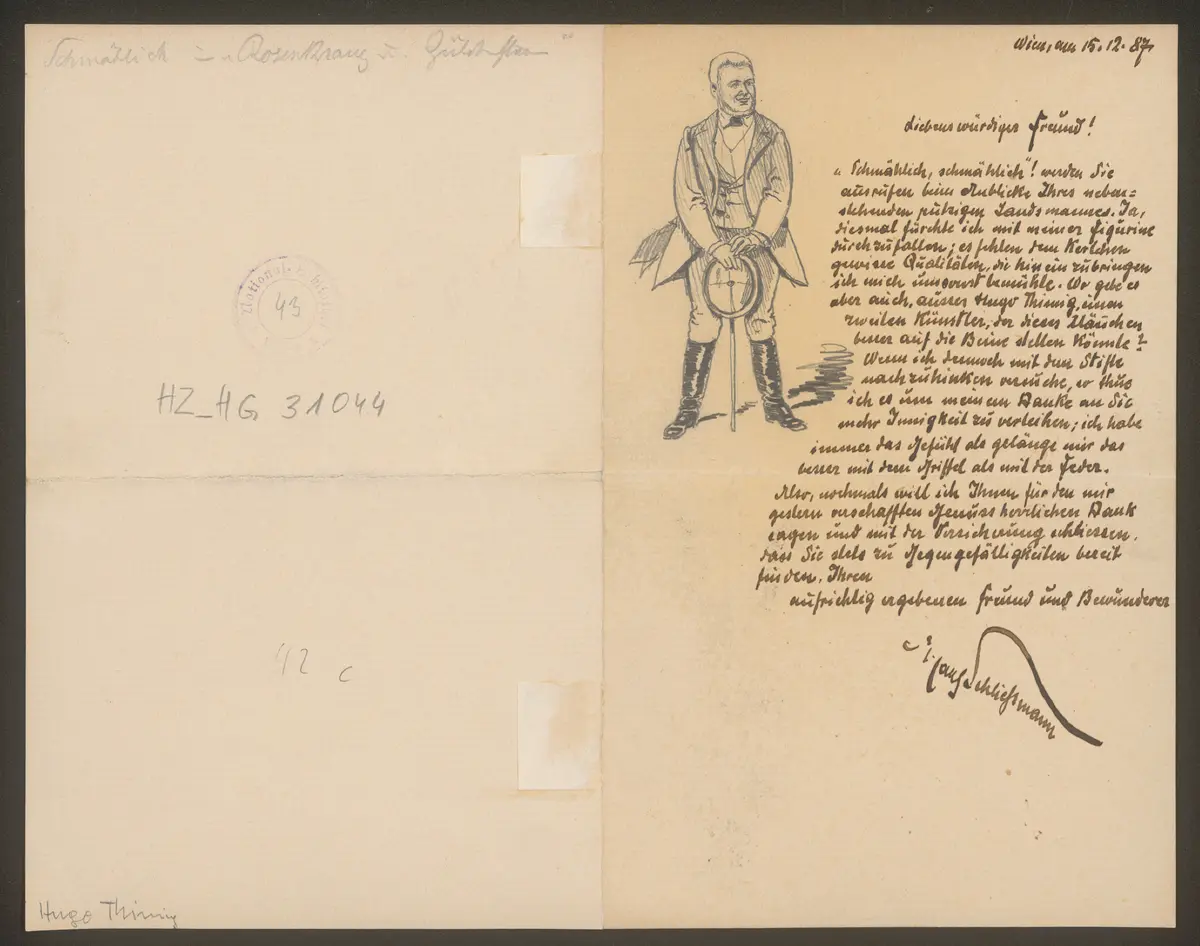 Schmählich in "Rosenkranz u. Güldenstern"
National-Bibliothek
43
HZ_HG 31044
42 c
Hugo Thimig
Wien, am 15.12.87.
Liebenswürdiger Freund!
„Schmählich, schmählich"! werden Sie
ausrufen beim Anblicke Ihres neben=
stehenden putzigen Landsmannes. Ja,
diesmal fürchte ich mit meiner Figurine
durchzufallen; es fehlen dem Kerlchen
gewisse Qualitäten, die hineinzubringen
ich mich umsonst bemühte. Wo gebe es
aber auch, ausser Hugo Thimig, einen
zweiten Künstler, der dieses Kläuschen
besser auf die Beine stellen könnte?
Wenn ich dennoch mit dem Stifte
nachzuhinken versuche, so thue
ich es um meinem Danke an Sie
mehr Innigkeit zu verleihen; ich habe
immer das Gefühl als gelänge mir das
besser mit dem Griffel als mit der Feder.
Also, nochmals will ich Ihnen für den mir
gestern verschafften Genuss herrlichen Dank
sagen und mit der Versicherung schliessen,
dass Sie stets zu Gegengefälligkeiten bereit
finden, Ihren
aufrichtig ergebenen Freund und Bewunderer
Hans Schließmann